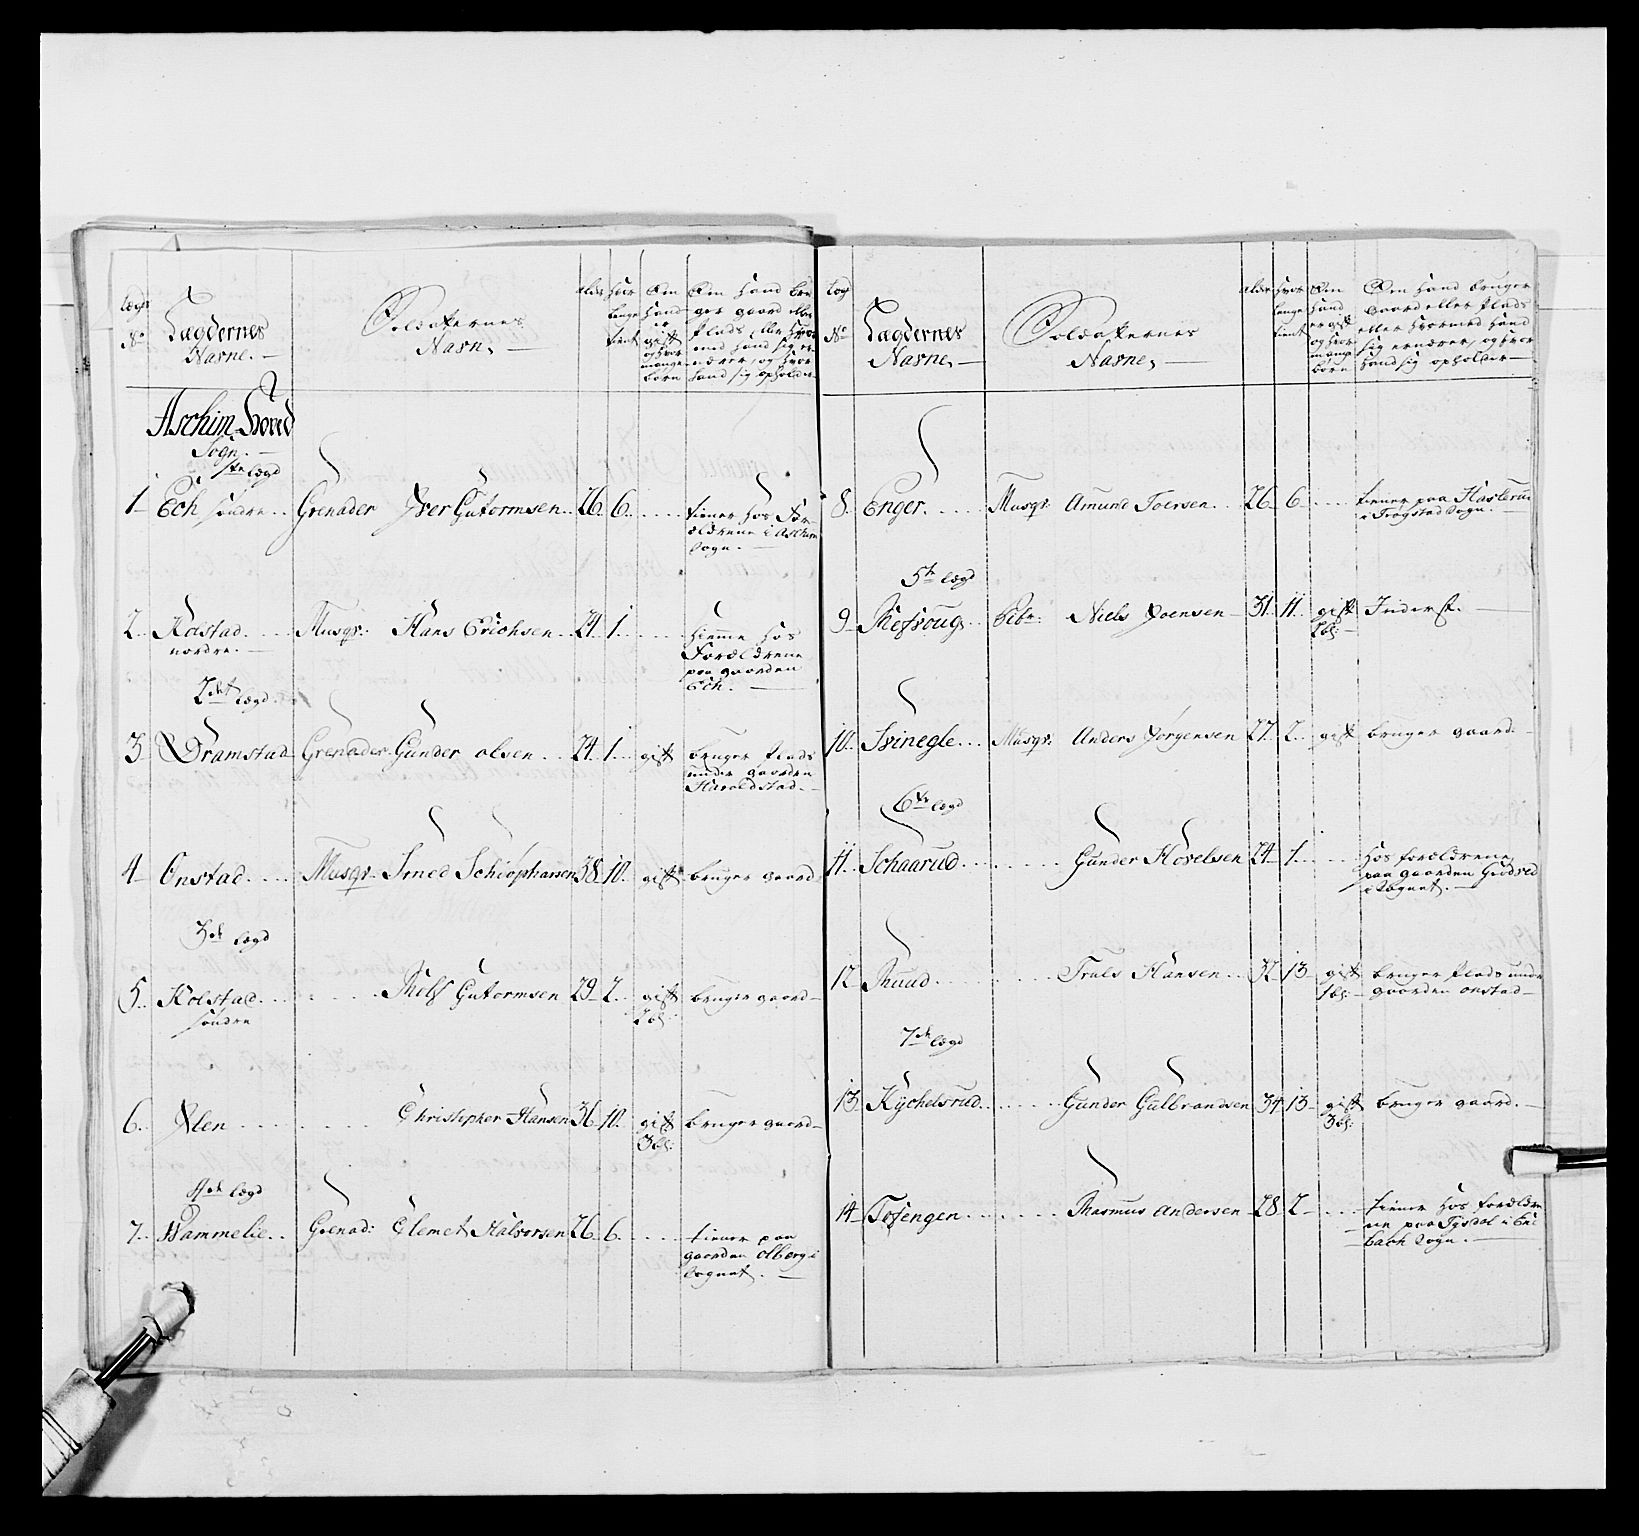 Lægs No
Lagdernes Nafne.
Soldaternes Nafn,
alder
hvor lange tient
Om hand er gift og hvor mange børn
Om hand bru
ger gaard eller
Plads eller hvor
med hand sig er
nærer, og hvor
hand sig opholder
Aschim Hoved
Sogn.
1ste lægd
1 Ech søndre Grenader Iver Gutormsen 26 6 tiener hos For-
ældrene i Aschim
Sogn.
2 Kolstad Musqr. Hans Erichsen 24 1 hiemme hos
nordre. Forældrene
paa gaarden
Ech.
2det lægd
3 Dramstad Grenader Gunder olsen 24 1 gift bruger Plads
under gaarden
Haraldstad.
4 Onstad Musqr. Smed Schiøphansen 38 10 gift bruger gaard
3de lægd
5 Kolstad Rolf Gutormsen 29 2 gift bruger gaard
søndre 2 b:
6 Christopher Hansen 36 10 gift bruger gaard
3 b:
4de lægd
7 Wammelie Grenad: Clemet Halvorsen 26 6 tiener paa
gaarden olberg i
Sognet.
Lægd No
Lagdernes Nafne,
Soldaternes Nafne,
alder
hvor lange tient
Om hand er gift og hvor mange børn
Om hand bruger
Gaard eller Plads
eller hvormed hand
sig ernærer, og hvor
hand sig opholder
8 Enger Musqr. Amund Toersen 26 6 tiener paa Haslerud
i Trøgstad Sogn.
5te lægd
9 Niels Joensen 31 11 gift Inderst.
2 b:
10 Svinegle Musqr. Anders Jørgensen 27 2 gift bruger gaard
6te lægd
11 Schaarud Gunder Hovelsen 24 1 hos forældrene
paa gaarden Gudsred
i Sognet.
12 Ruud Truls Hansen 32 13 gift bruger Plads under
1 b: gaarden onstad
7de lægd
13 Kychelsrud Gunder Gulbrandsen 34 13 gift bruger gaard.
3 b:
14 Tosengen Rasmus Andersen 28 2 tiener hos forældre
ne paa
bach Sogn.